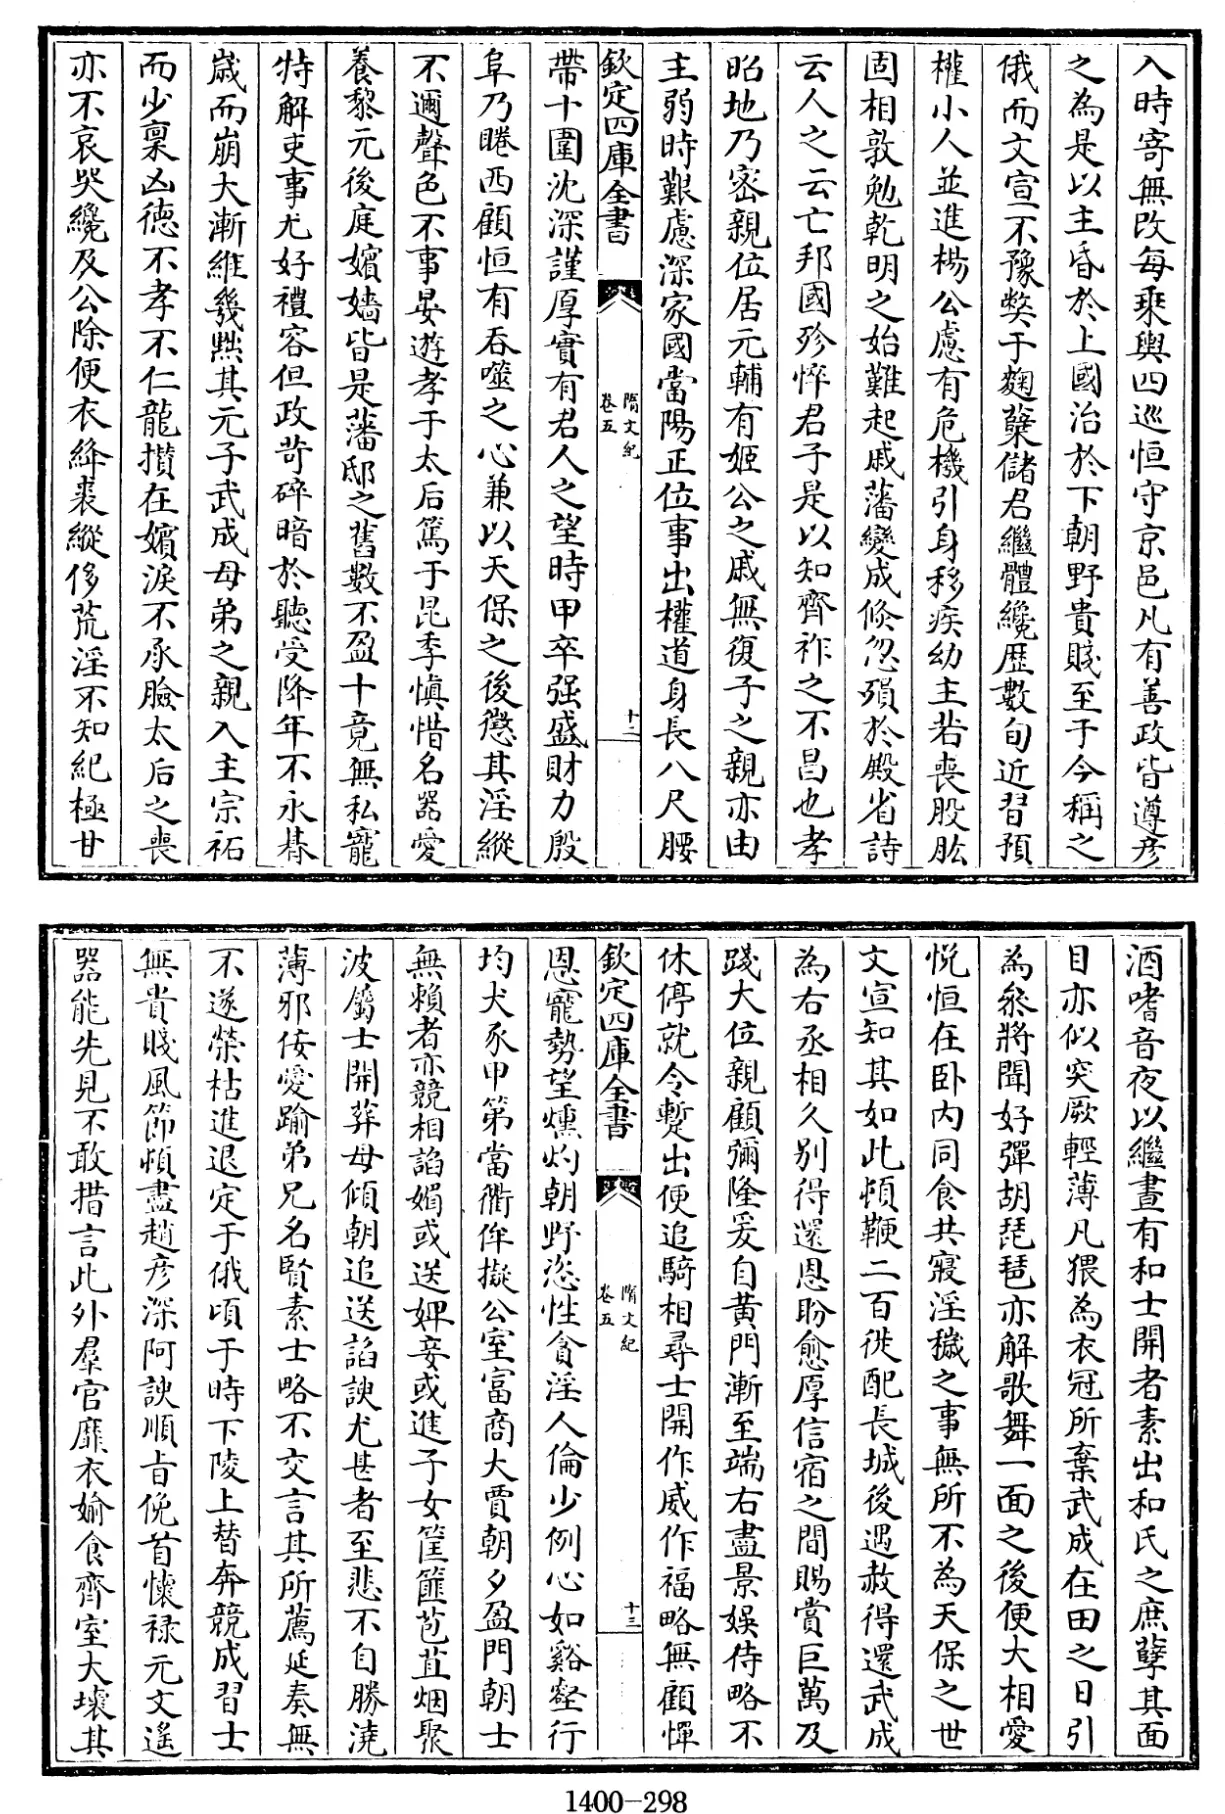 入時寄無改每乘輿四巡恒守京邑凡有善政皆遵彦
之為是以主昏於上國治於下朝野貴賤至于今稱之
俄而文宣不豫弊于麹蘖儲君繼體纔歴數旬近習預
權小人並進楊公慮有危機引身移疾幼主若喪股肱
固相敦勉乾明之始難起戚藩變成倐忽殞於殿省詩
云人之云亡邦國殄悴君子是以知齊祚之不昌也孝
昭地乃密親位居元輔有姬公之戚無復子之親亦由
主弱時艱慮深家國當陽正位事出權道身長八尺腰
欽定四庫全書
隋文紀
卷五
十二
帶十圍沈深謹厚實有君人之望時甲卒强盛財力殷
阜乃睠西顧恒有吞噬之心兼以天保之後懲其淫縱
不邇聲色不事晏遊孝于太后篤于昆季慎惜名器愛
養黎元後庭嬪嬙皆是藩邸之舊數不盈十竟無私寵
特解吏事尤好禮容但政苛碎暗於聽受降年不永朞
歳而崩大漸維幾黜其元子武成母弟之親入主宗祏
而少稟凶德不孝不仁龍攢在嬪淚不承臉太后之喪
亦不哀哭纔及公除便衣絳裘縱侈荒淫不知紀極甘
酒嗜音夜以繼晝有和士開者素出和氏之庶孽其面
目亦似突厥輕薄凡猥為衣冠所棄武成在田之日引
為叅將聞好彈胡琵琶亦解歌舞一面之後便大相愛
悦恒在卧内同食共寢淫穢之事無所不為天保之世
文宣知其如此頓鞭二百徙配長城後遇赦得還武成
為右丞相久别得還恩盼愈厚信宿之間賜賞巨萬及
踐大位親顧彌隆爰自黄門漸至端右盡景娱侍略不
休停就令蹔出便追騎相尋士開作威作福略無顧憚
欽定四庫全書
隋文紀
卷五
十三
恩寵勢望燻灼朝野恣性貪淫人倫少例心如谿壑行
均犬豕甲第當衢侔擬公室富商大賈朝夕盈門朝士
無賴者亦競相諂媚或送婢妾或進子女筐篚苞苴烟聚
波屬士開葬母傾朝追送諂諛尤甚者至悲不自勝澆
薄邪佞愛踰弟兄名賢素士略不交言其所薦延奏無
不遂榮枯進退定于俄頃于時下陵上替奔競成習士
無貴賤風節頓盡趙彦深阿諛順旨俛首懷禄元文遥
器能先見不敢措言此外羣官靡衣媮食齊室大壞其
1400-298